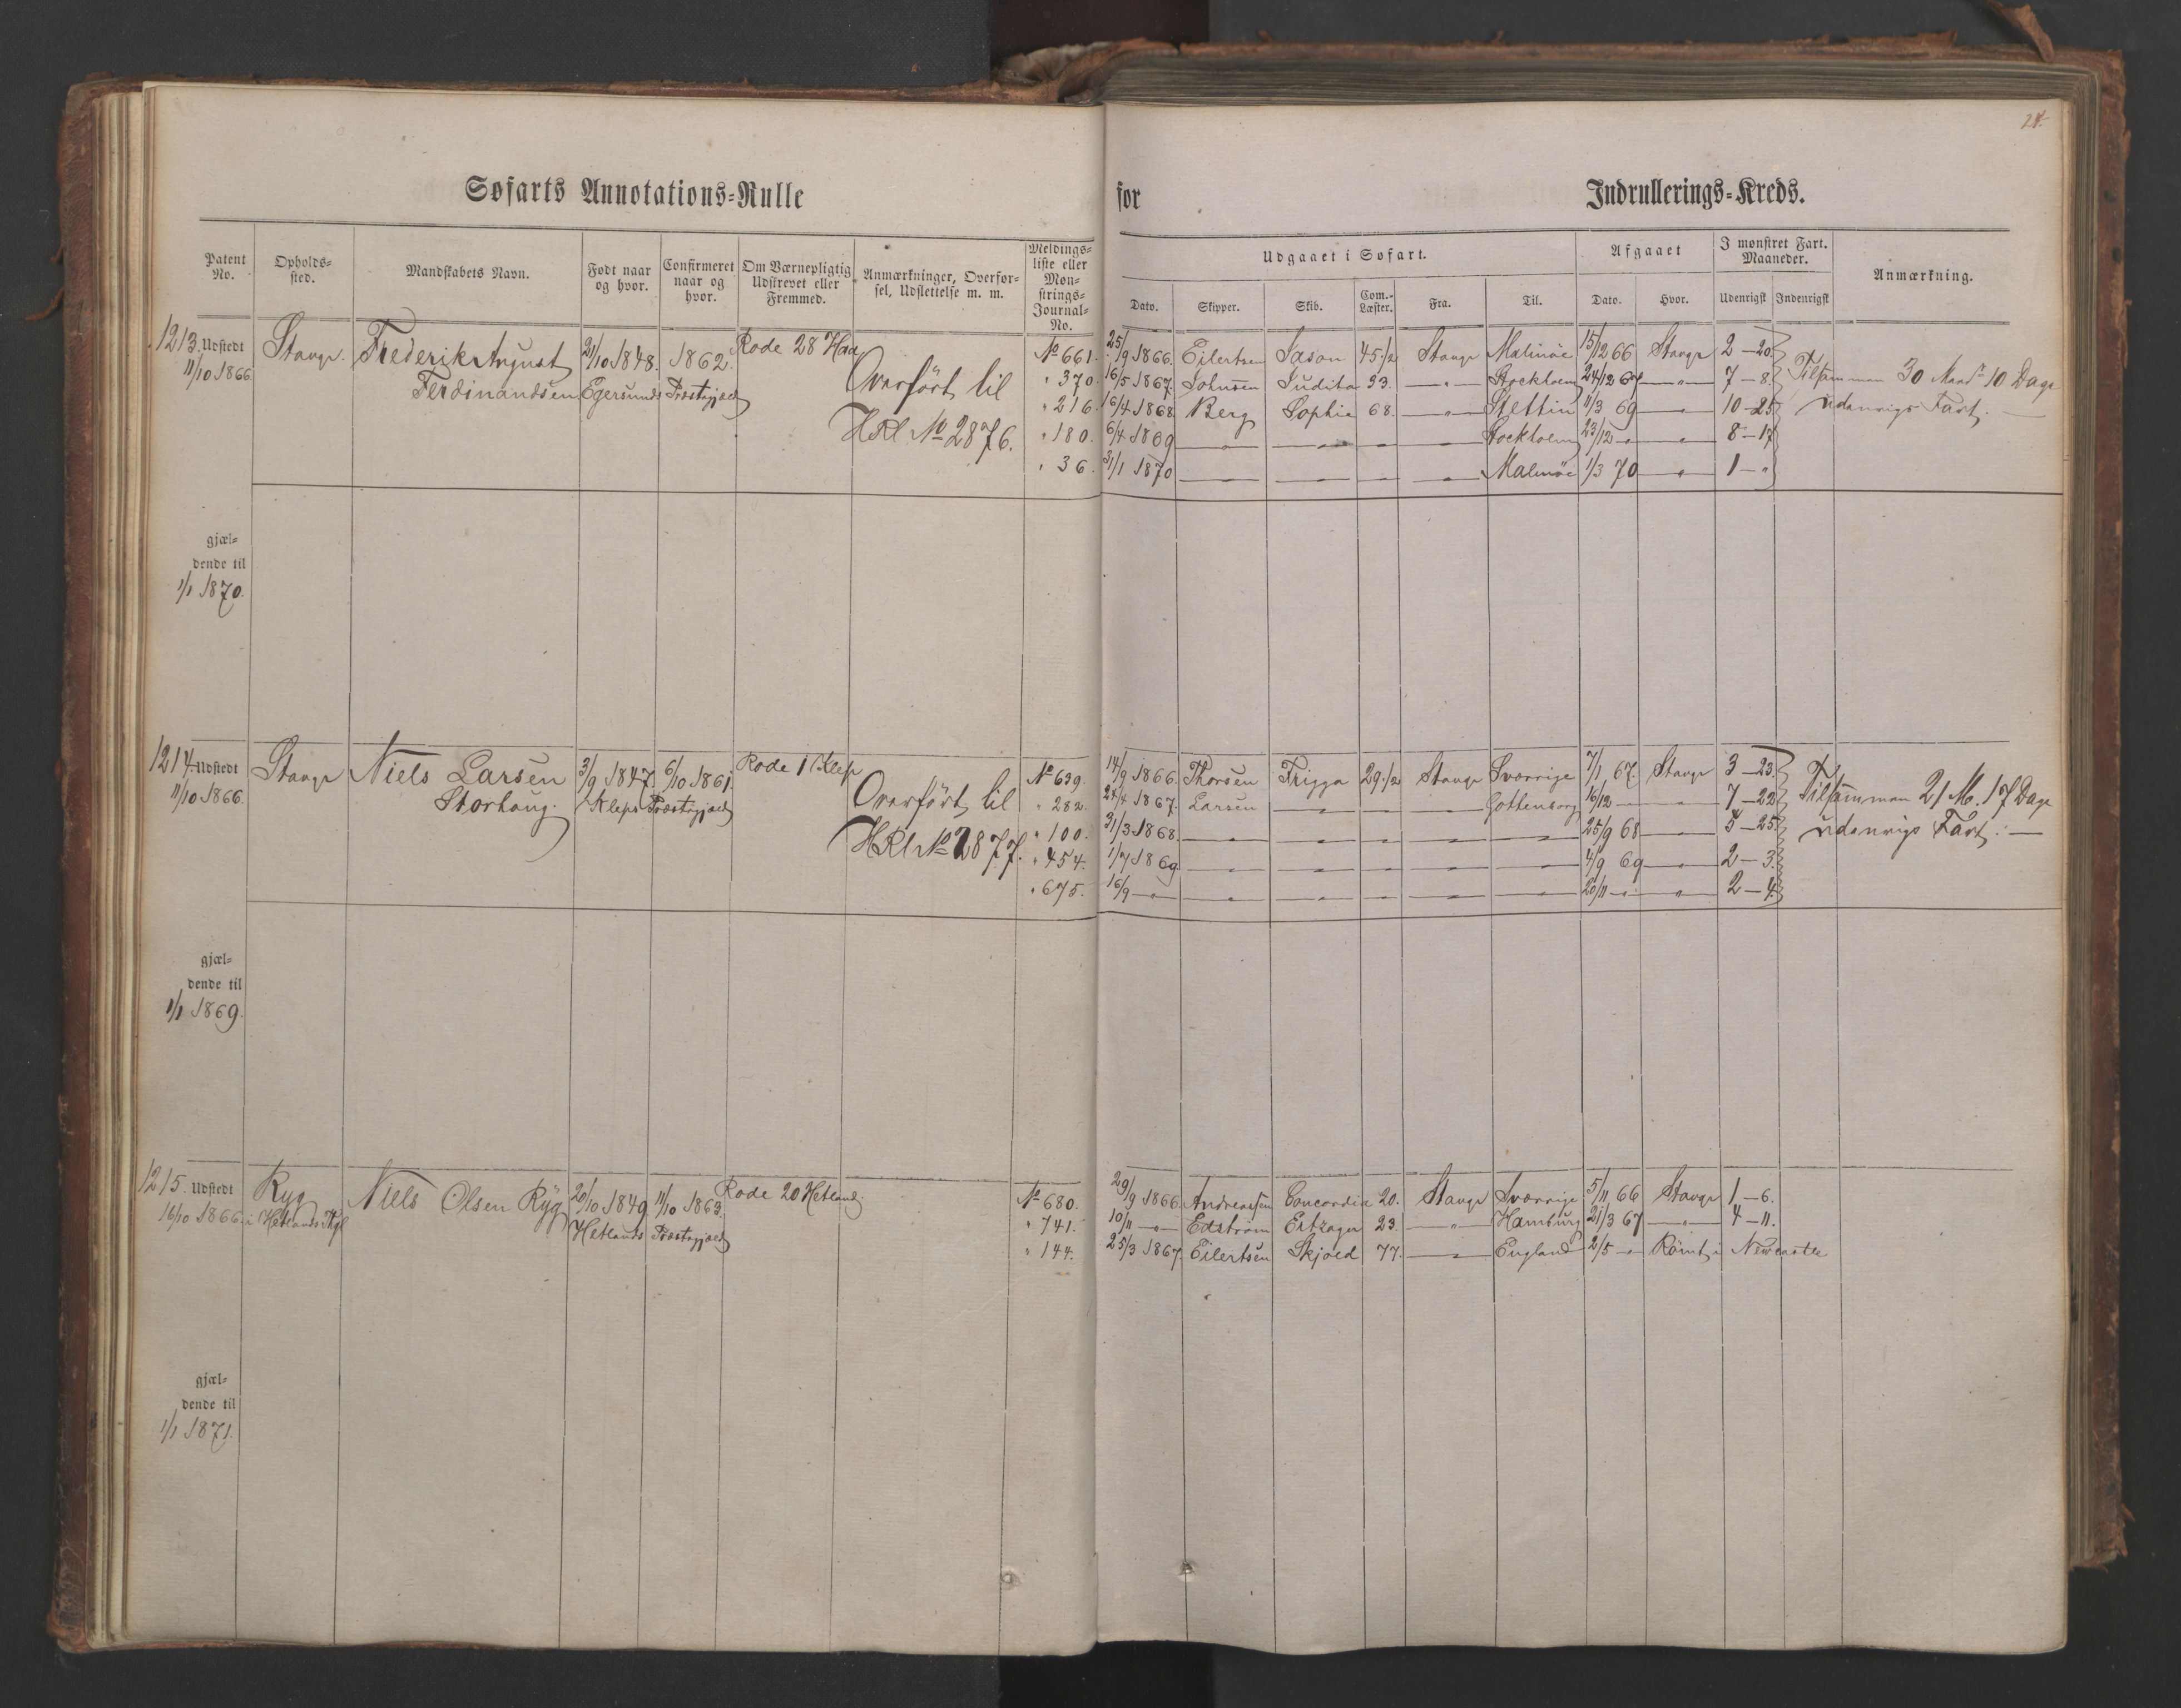 24.
Søfarts Annotations-Rulle for Indrullerings-Kreds.
Patent No. Opholds-sted. Mandskabets Navn. Født naar og hvor. Confirmeret naar og hvor. Om Værnepligtig Udskrevet eller Fremmed. Anmærkninger, Overførsel, Udslettelse m. m. Meldings-liste eller Mønstrings-Journal-No.
Udgaaet i Søfart. Afgaaet I mønstret Fart. Maaneder. Anmærkning.
Dato. Skipper. Skib. Com.-Læster. Fra. Til. Dato. Hvor. Udenrigsk Indenrigsk
1213. Udstedt Stavgr. Frederik August 21/10 1848. 1862. Rode 28 Haa No 661. 25/9 1866. Eilertsen Jason 45 1/2 Stavgr Malmöe 15/12 66 Stavgr 2 — 20.
11/10 1866. Ferdinandsen Egersunds Præstegjæld Overfört til " 370. 16/5 1867. Johnsen Judita 93. — " — Stockholm 24/12 67 — " — 7 — 8. Tilsammen 30 Maad. 10 Dage
HRl No 2876. " 216. 16/4 1868 Berg Sophie 68. — " — Stettin 11/3 69 — " — 10 — 25 udenrigs Fart. —
" 180. 6/4 1869 — " — — " — — " — — " — Stockholm 23/12 — " — " — 8 — 17
" 36. 31/1 1870 — " — — " — — " — — " — Malmöe 1/3 70 — " — 1 — "
gjæl-
dende til
1/1 1870.
1214. Udstedt Stavgr Niels Larsen 3/9 1847. 6/10 1861. Rode 1 Klep No 639. 14/9 1866. Thorsen Frigga 29 1/2 Stavgr Sverrige 7/1 67. Stavgr 3 — 23.
11/10 1866. Storhaug. Kleps Præstegjæld Overfört til " 282. 24/4 1867. Larsen — " — — " — — " — Gottenborg 16/12 — " — 7 — 22 Tilsammen 21 M. 17 Dage
HRl No 2877. " 100. 31/3 1868. — " — — " — — " — — " — — " — 25/9 68 — " — 5 — 25. udenrigs Fart. —
" 454. 1/7 1869. — " — — " — — " — — " — — " — 4/9 69 — " — 2 — 3.
" 675. 16/9 — " — — " — — " — — " — — " — — " — 20/11 — " — — " — 2 — 4.
gjæl-
dende til
1/1 1869.
1215. Udstedt Ryg Niels Olsen Ryg 20/10 1849 11/10 1863. Rode 20 Hetland. No 680. 29/9 1866. Andreassen Concordia 20. Stavgr Sverrige 5/11 66 Stavgr 1 — 6.
16/10 1866. i Hetlands Hetlands Præstegjæld " 741. 10/11 — " — Edström 23. — " — Hamburg 21/3 67 — " — 4 — 11.
" 144. 25/3 1867. Eilertsen Skjold 77. — " — England 2/5 — " Römt i Newcastle
gjæl-
dende til
1/1 1871.